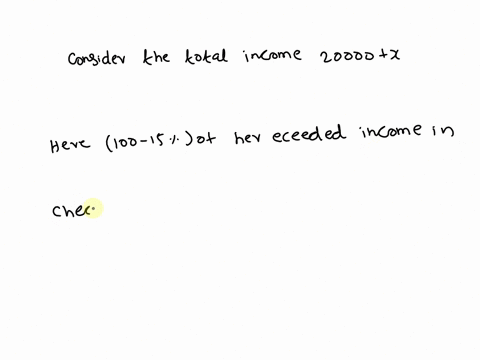 Consider the total income 20000+x
Here (100-15%) of her eceeded income in
chec